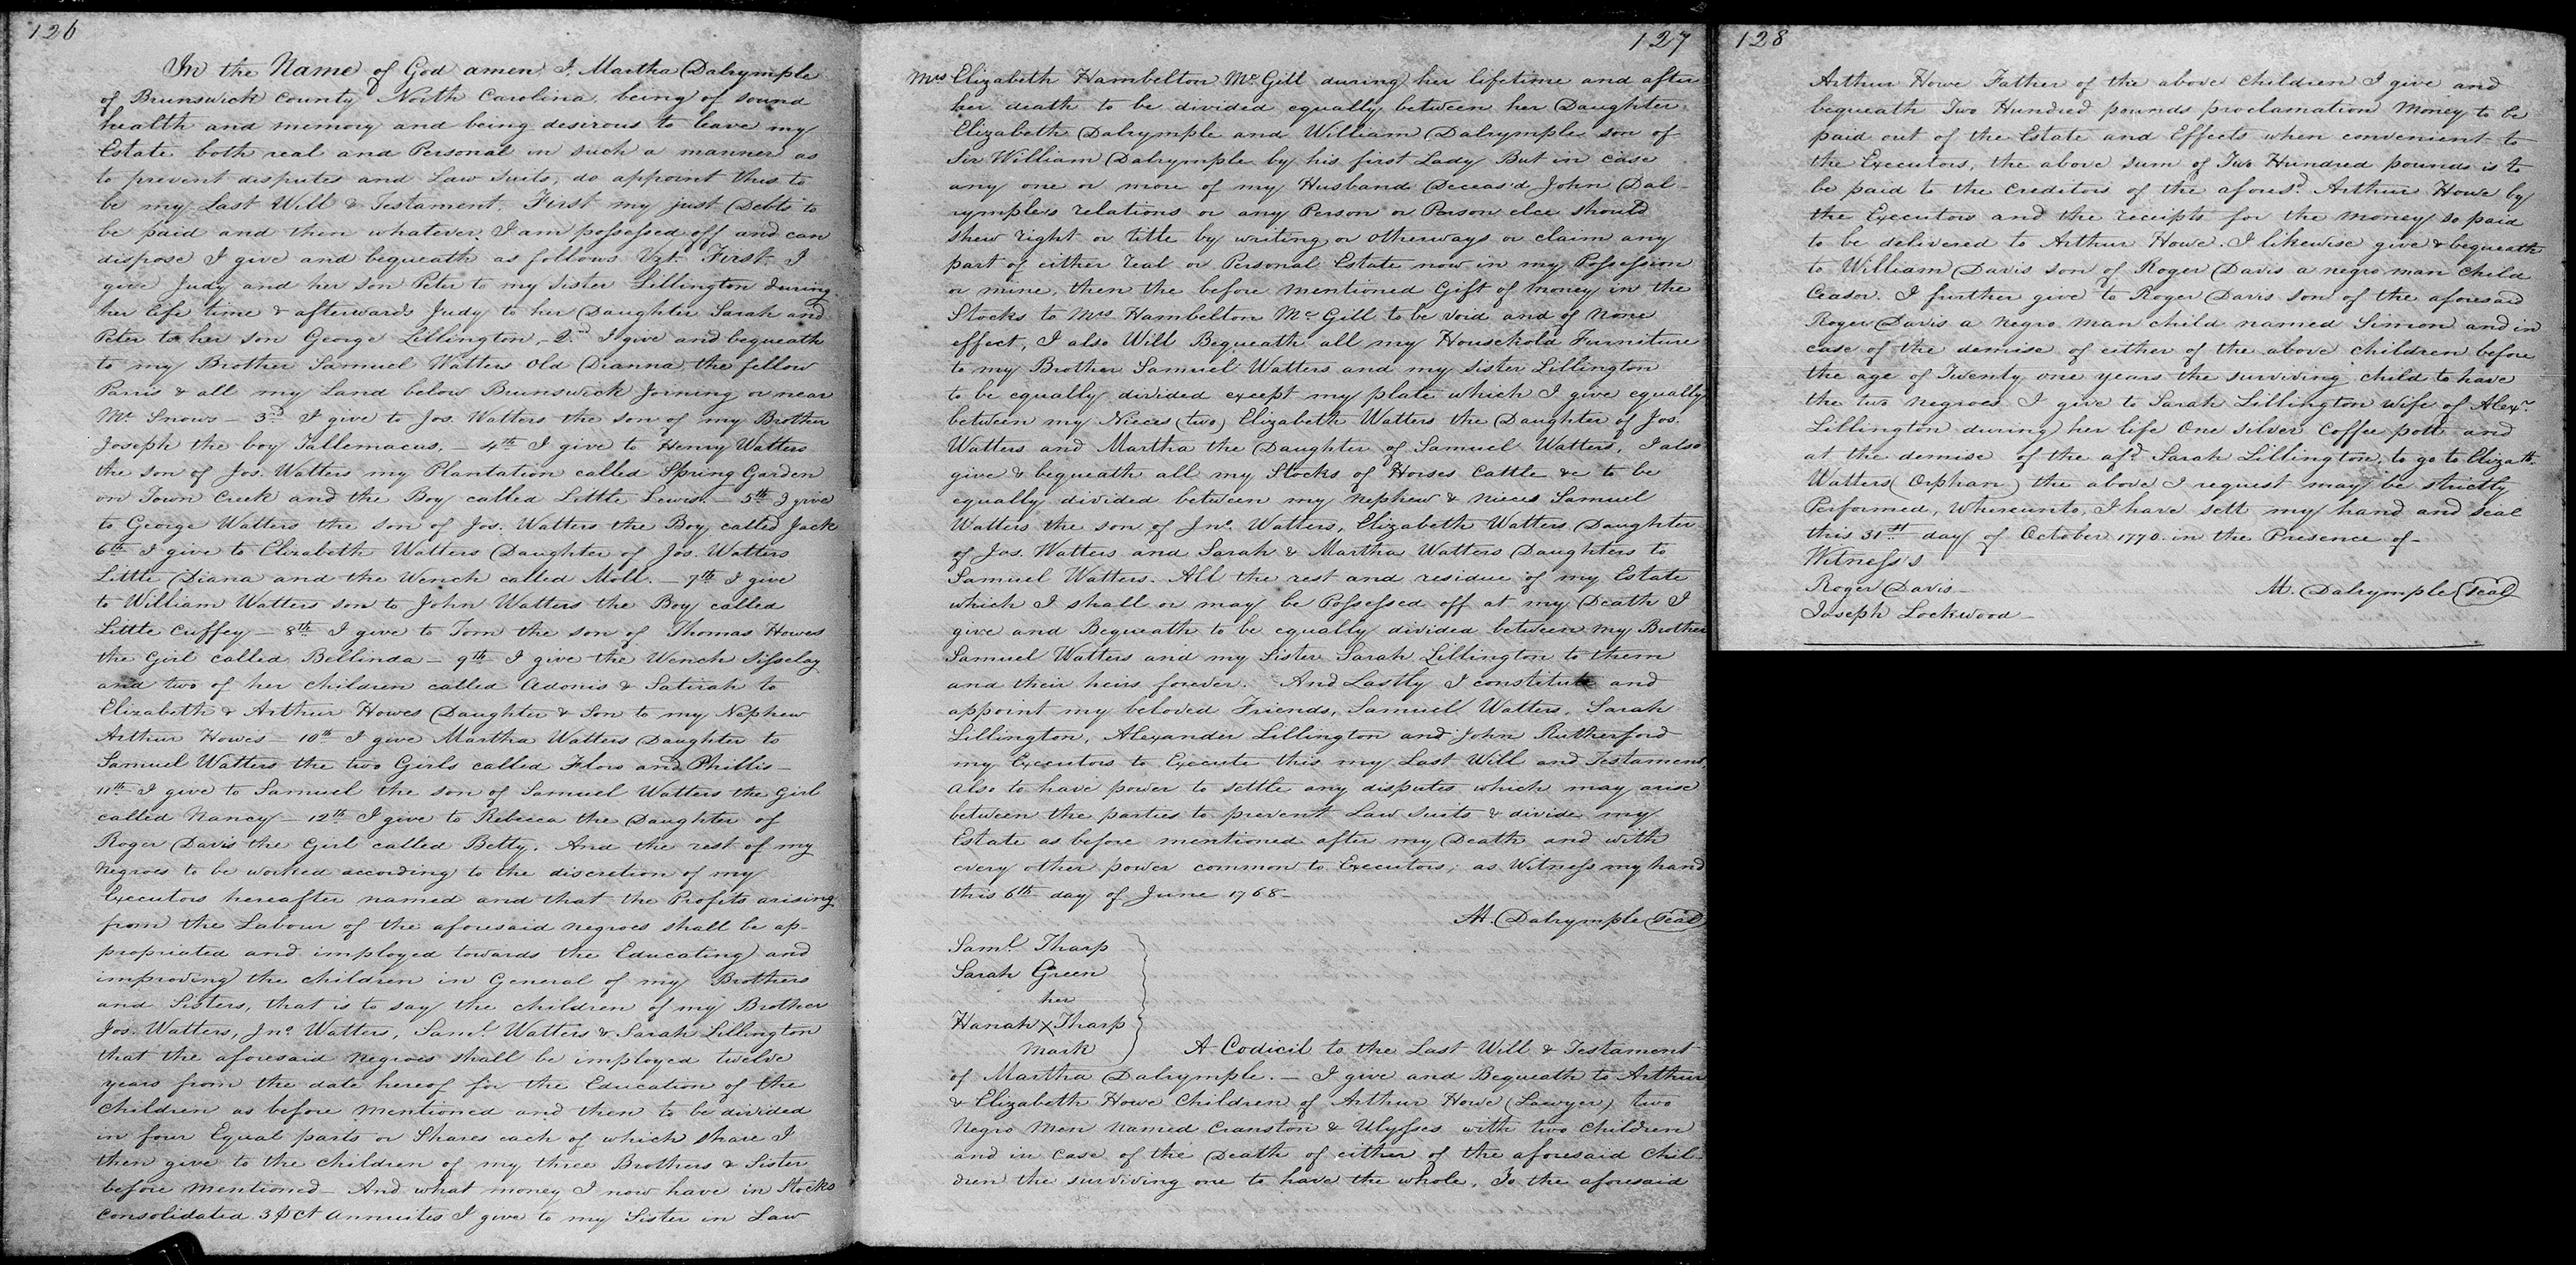 126
In the Name of God amen, I, Martha Dalrymple
of Brunswick County North Carolina, being of sound
health and memory and being desirous to leave my
Estate both real and Personal in such a manner as
to prevent disputes and Law suits, do appoint this to
be my Last Will & Testament. First my just Debts to
be paid and then whatever I am possessed off and can
dispose I give and bequeath as follows Vzt. First I
give Judy and her son Peter to my Sister Lillington during
her life time & afterwards Judy to her Daughter Sarah and
Peter to her son George Lillington, 2nd I give and bequeath
to my Brother Samuel Watters Old Dianna, the fellow
Parris & all my Land below Brunswick Joining or near
Mr. Snows — 3rd I give to Jos. Watters the son of my Brother
Joseph the boy Tallemacus. — 4th I give to Henry Watters
the son of Jos. Watters my Plantation called Spring Garden
on Town Creek and the Boy called Little Lewis. — 5th I give
to George Watters the son of Jos. Watters the Boy called Jack
6th I give to Elizabeth Watters Daughter of Jos. Watters
Little Diana and the Wench called Moll. — 7th I give
to William Watters son to John Watters the Boy called
Little Cuffey — 8th I give to Tom the son of Thomas Howes
the Girl called Bellinda — 9th I give the Wench Sisselay
and two of her children called Adonis & Satirah to
Elizabeth & Arthur Howes Daughter & Son to my Nephew
Arthur Howes — 10th I give Martha Watters Daughter to
Samuel Watters the two Girls called Flora and Phillis —
11th I give to Samuel the son of Samuel Watters the Girl
called Nancy — 12th I give to Rebecca the Daughter of
Roger Davis the Girl called Betty. And the rest of my
Negroes to be worked according to the discretion of my
Executors hereafter named and that the Profits arising
from the Labour of the aforesaid negroes shall be ap-
propriated and imployed towards the Educating and
improving the children in General of my Brothers
and Sisters, that is to say the children of my Brother
Jos. Watters, Jno. Watters, Saml. Watters & Sarah Lillington
that the aforesaid Negroes shall be imployed twelve
years from the date hereof for the Education of the
children as before mentioned and then to be divided
in four Equal parts or Shares each of which share I
then give to the children of my three Brothers & Sister
before mentioned — And what money I now have in Stocks
Consolidated 3 pCt Annuites I give to my Sister in Law
127
Mrs Elizabeth Hambelton McGill during her lifetime and after
her death to be divided equally between her Daughter
Elizabeth Dalrymple and William Dalrymple son of
Sir William Dalrymple by his first Lady But in case
any one or more of my Husband Deceas'd John Dal-
rymple's relations or any Person or Person else should
shew right or title by writing or otherways or claim any
part of either real or Personal Estate now in my Possession
or mine, then the before mentioned Gift of money in the
Stocks to Mrs Hambelton McGill to be void and of none
effect, I also Will Bequeath all my Household Furniture
to my Brother Samuel Watters and my Sister Lillington
to be equally divided except my plate which I give equally
between my Nieces (two) Elizabeth Watters the Daughter of Jos.
Watters and Martha the Daughter of Samuel Watters, I also
give & bequeath all my Stocks of Horses Cattle &c to be
equally divided between my nephew & nieces Samuel
Watters the son of Jno. Watters, Elizabeth Watters Daughter
of Jos. Watters and Sarah & Martha Watters Daughters to
Samuel Watters. All the rest and residue of my Estate
which I shall or may be Possessed off at my Death I
give and Bequeath to be equally divided between my Brother
Samuel Watters and my Sister Sarah Lillington to them
and their heirs forever. And Lastly I constitute and
appoint my beloved Friends, Samuel Watters, Sarah
Lillington, Alexander Lillington and John Rutherford
my Executors to Execute this my Last Will and Testament
also to have power to settle any disputes which may arise
between the parties to prevent Law suits & divide my
Estate as before mentioned after my Death and with
every other power common to Executors; as Witness my hand
this 6th day of June 1768 —
M. Dalrymple (Seal)
Saml. Tharp
Sarah Green
her
Hanah X Tharp
mark
A Codicil to the Last Will & Testament
of Martha Dalrymple. — I give and Bequeath to Arthur
& Elizabeth Howe Children of Arthur Howe (Lawyer) two
Negro Men named Cranston & Ulysses with two children
and in case of the Death of either of the aforesaid Chil-
dren the surviving one to have the whole. To the aforesaid
128
Arthur Howe Father of the above children I give and
bequeath Two Hundred pounds proclamation Money to be
paid out of the Estate and Effects when convenient to
the Executors, the above sum of Two Hundred pounds is to
be paid to the Creditors of the aforesd. Arthur Howe by
the Executors and the receipts for the money so paid
to be delivered to Arthur Howe. I likewise give & bequeath
to William Davis son of Roger Davis a negro man child
Ceasor. I further give to Roger Davis son of the aforesaid
Roger Davis a Negro man child named Simon and in
case of the demise of either of the above children before
the age of Twenty one years the surviving child to have
the two Negroes I give to Sarah Lillington wife of Alexr.
Lillington during her life One silver Coffee pott and
at the demise of the afd. Sarah Lillington, to go to Elizath.
Watters (Orphan) the above I request may be strictly
Performed, Whereunto, I have sett my hand and seal
this 31st day of October 1770. in the Presence of —
Witness's
Roger Davis —
M. Dalrymple (Seal)
Joseph Lockwood —